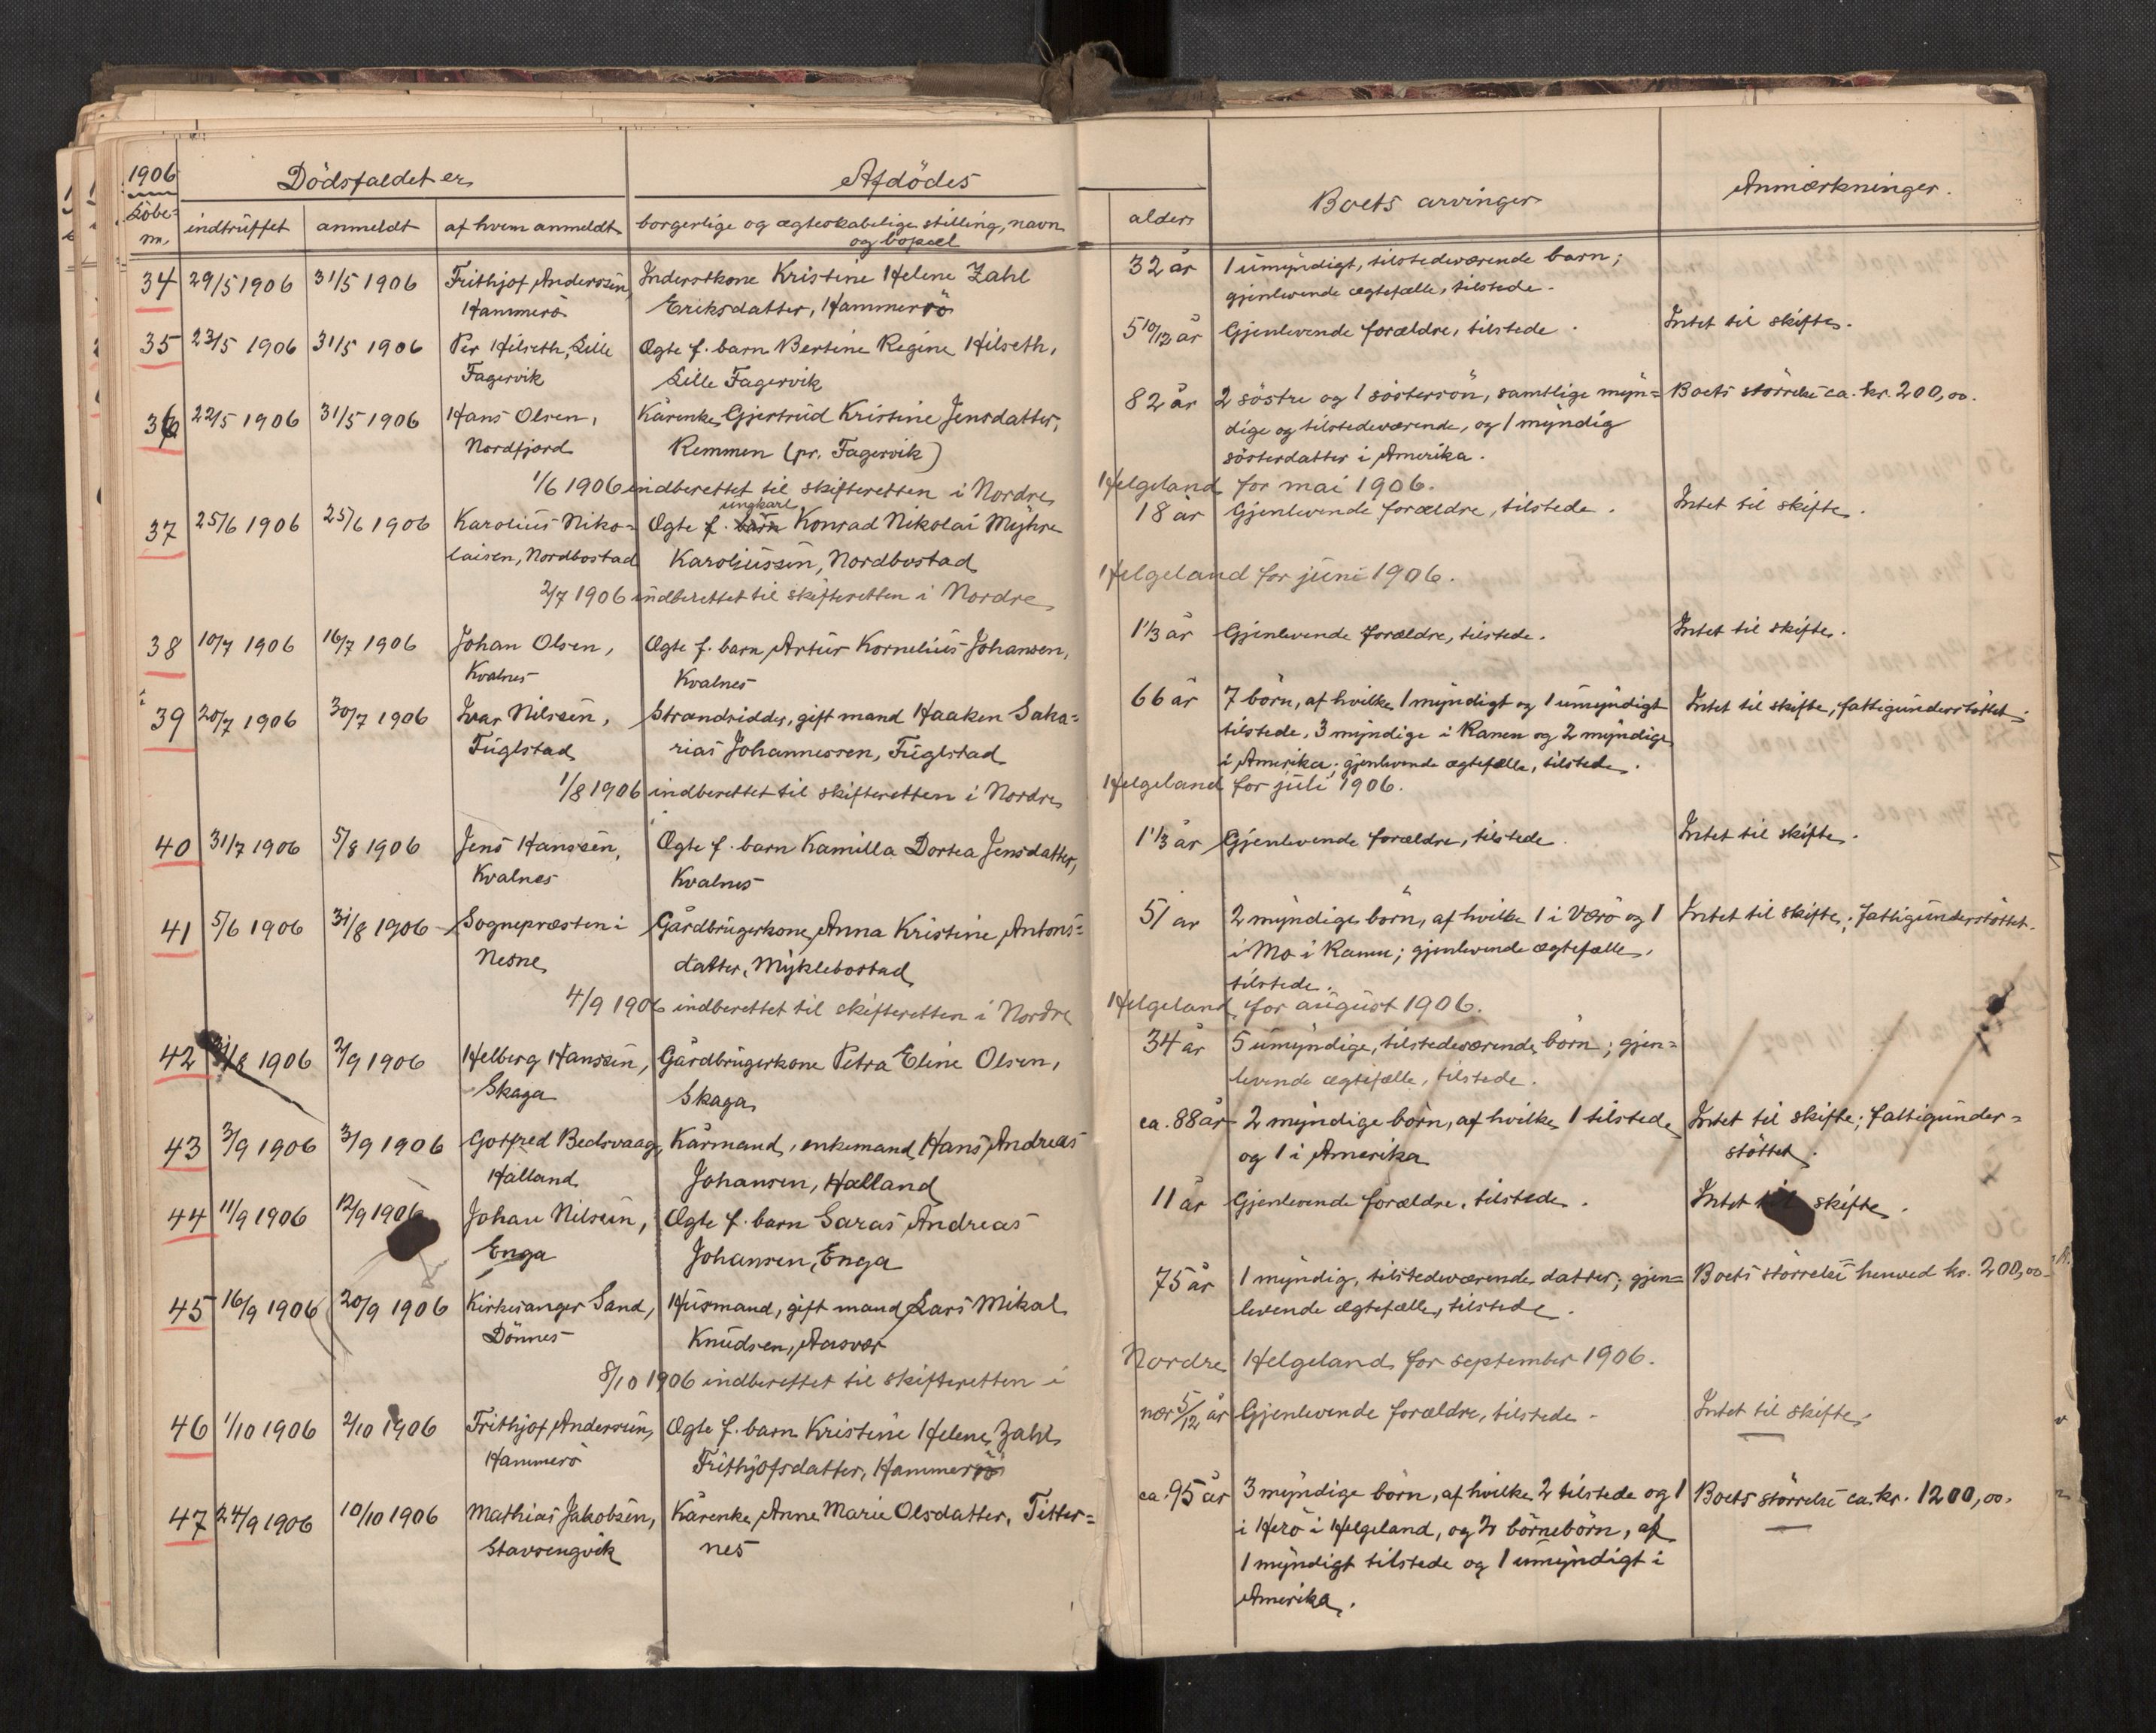 1906
Löbe-
nr.
Dödsfaldet er
Afdödes
indtruffet anmeldt af hvem anmeldt borgerlige og ægteskabelige stilling, navn
og bopæl
alder
Boets arvinger
Anmærkninger.
34 29/5 1906 31/5 1906 Frithjof Anderssen, Inderstkone Kristine Helene Zahl 32 år 1 umyndigt, tilstedeværende barn;
Hammerö Eriksdatter, Hammerö gjenlevende ægtefælle, tilstede.
35 23/5 1906 31/5 1906 Per Hilseth, Lille Ægte f. barn Bertine Regine Hilseth, 5 10/12 år Gjenlevende forældre, tilstede. Intet til skifte.
Fagervik Lille Fagervik
36 22/5 1906 31/5 1906 Hans Olsen, Kårenke Gjertrud Kristine Jensdatter, 82 år 2 söstre og 1 söstersön, samtlige myn- Boets störrelse ca. kr. 200,00.
Nordfjord Remmen (pr. Fagervik) dige og tilstedeværende, og 1 myndig
sösterdatter i Amerika.
1/6 1906 indberettet til skifteretten i Nordre Helgeland for mai 1906.
ungkarl
37 25/6 1906 25/6 1906 Karolius Niko- Ægte f. barn Konrad Nikolai Myhre 18 år Gjenlevende forældre, tilstede. Intet til skifte.
laisen, Nordbostad Karoliussen, Nordbostad
2/7 1906 indberettet til skifteretten i Nordre Helgeland for juni 1906.
38 10/7 1906 16/7 1906 Johan Olsen, Ægte f. barn Artur Kornelius Johansen, 1 1/3 år Gjenlevende forældre, tilstede. Intet til skifte.
Kvalnes Kvalnes
39 20/7 1906 30/7 1906 Ivar Nilssen, Strandsidder, gift mand Haaken Saka- 66 år 7 börn, af hvilke 1 myndigt og 1 umyndigt Intet til skifte; fattigunderstöttet.
Fuglstad rias Johannessen, Fuglstad tilstede, 3 myndige i Ranen og 2 myndige
i Amerika; gjenlevende ægtefælle, tilstede.
1/8 1906 indberettet til skifteretten i Nordre Helgeland for juli 1906.
40 31/7 1906 5/8 1906 Jens Hanssen, Ægte f. barn Kamilla Dortea Jensdatter, 1 1/3 år Gjenlevende forældre, tilstede. Intet til skifte.
Kvalnes Kvalnes
41 5/6 1906 31/8 1906 Sognepræsten i Gårdbrugerkone Anna Kristine Antons- 51 år 2 myndige börn, af hvilke 1 i Værö og 1 Intet til skifte; fattigunderstöttet.
Nesne datter, Myklebostad i Mo i Ranen; gjenlevende ægtefælle,
tilstede.
4/9 1906 indberettet til skifteretten i Nordre Helgeland for august 1906.
42 31/8 1906 2/9 1906 Helberg Hanssen, Gårdbrugerkone Petra Eline Olsen, 34 år 5 umyndige, tilstedeværende börn; gjen-
Skaga Skaga levende ægtefælle, tilstede.
43 3/9 1906 3/9 1906 Gotfred Bedsvaag, Kårmand, enkemand Hans Andreas ca. 88 år 2 myndige börn, af hvilke 1 tilstede Intet til skifte; fattigunder-
Halland Johansen, Halland og 1 i Amerika stöttet.
44 11/9 1906 12/9 1906 Johan Nilssen, Ægte f. barn Saras Andreas 11 år Gjenlevende forældre, tilstede. Intet til skifte.
Enga Johansen, Enga
45 16/9 1906 20/9 1906 Kirkesanger Sand, Husmand, gift mand Lars Mikal 75 år 1 myndig, tilstedeværende datter; gjen- Boets störrelse henved kr. 200,00.
Dönnes Knudsen, Aasvær levende ægtefælle, tilstede.
8/10 1906 indberettet til skifteretten i Nordre Helgeland for september 1906.
46 1/10 1906 2/10 1906 Frithjof Anderssen, Ægte f. barn Kristine Helene Zahl nær 5/12 år Gjenlevende forældre, tilstede. Intet til skifte.
Hammerö Frithjofsdatter, Hammerö
47 24/9 1906 10/10 1906 Mathias Jakobsen, Kårenke Anne Marie Olsdatter, Titter- ca. 95 år 3 myndige börn, af hvilke 2 tilstede og 1 Boets störrelse ca. kr. 1200,00.
Stavsengvik nes i Herö i Helgeland, og 2 börnebörn, af
1 myndigt tilstede og 1 umyndigt i
Amerika.